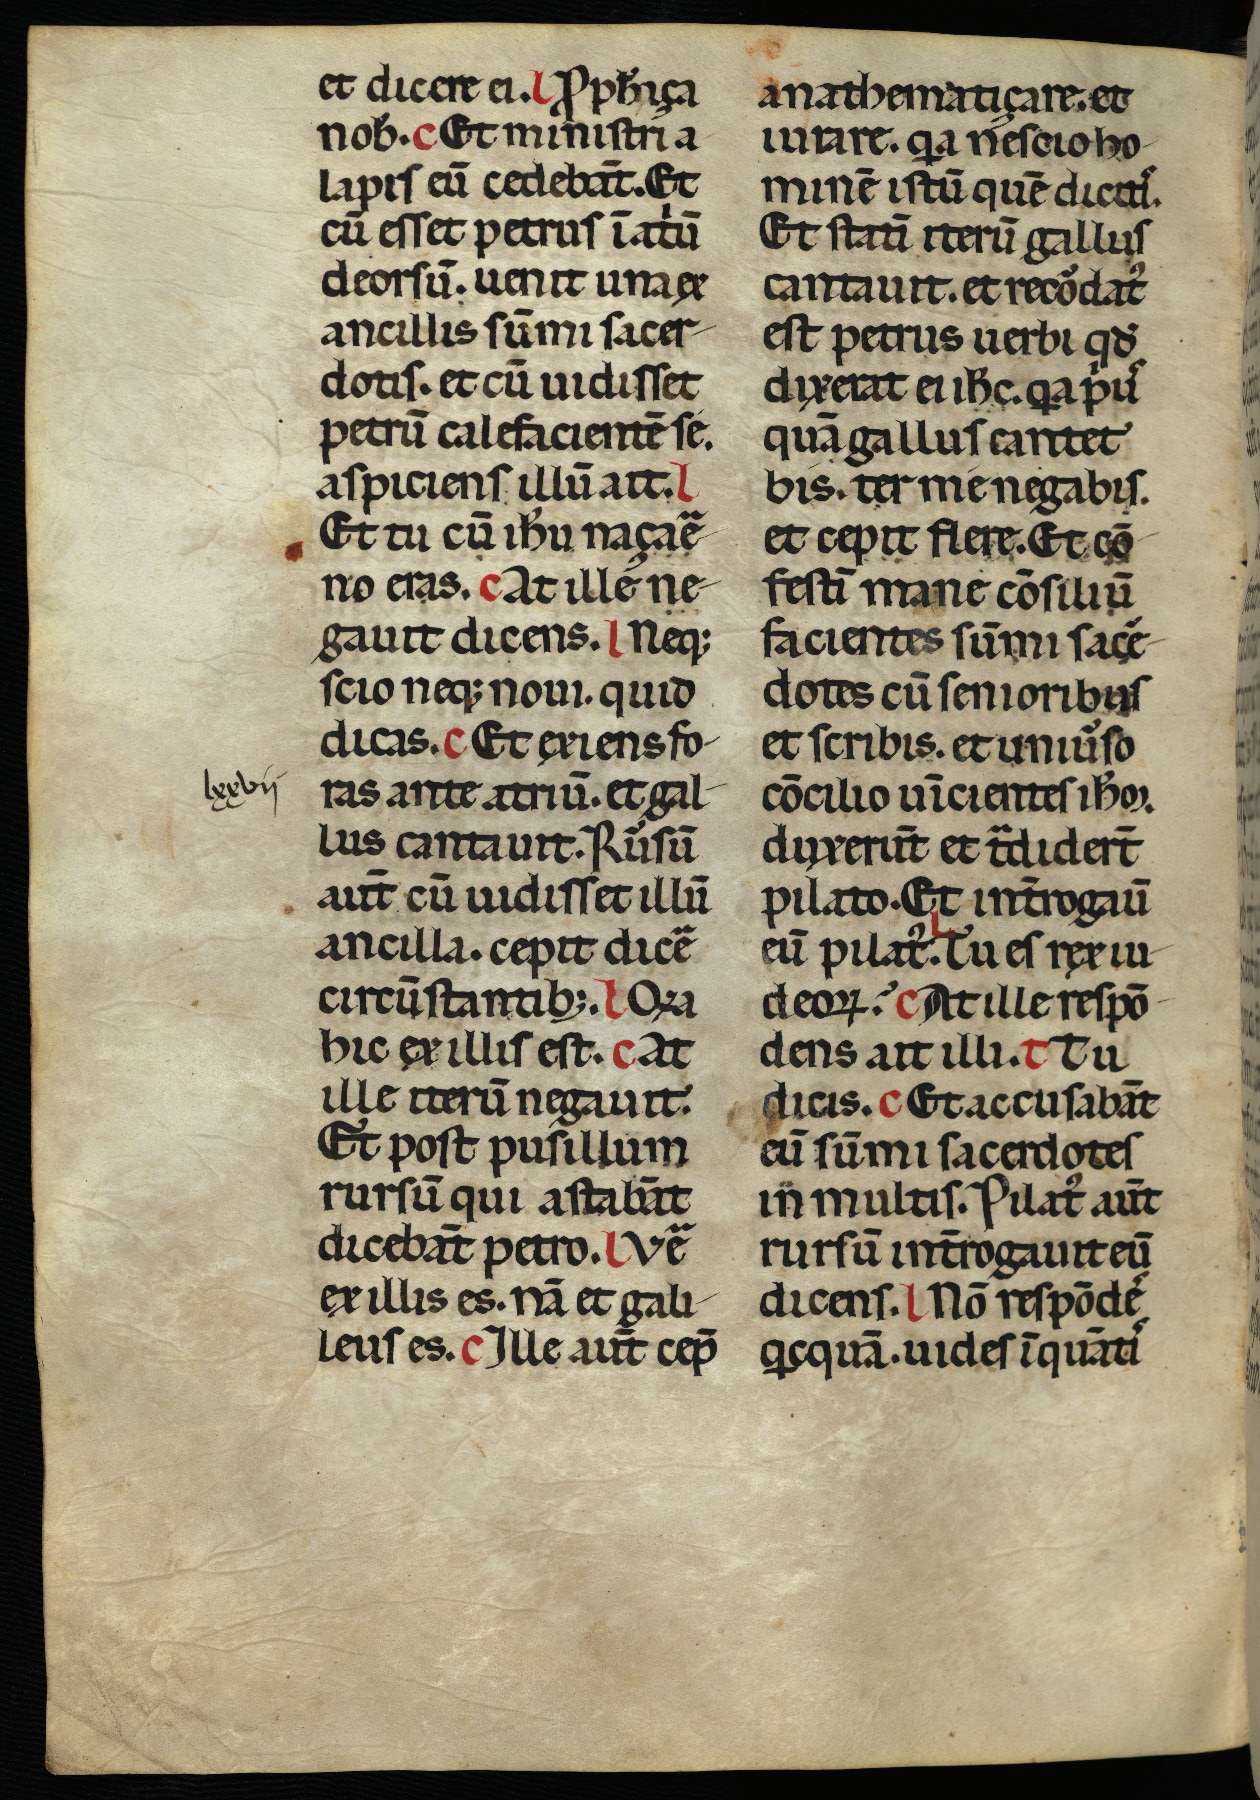 et dicere ei. l Ppħiça
nob. c Et ministri a
lapis eū cedebāt. Et
cū esset petrus ī atͥū
deorsū. uenit una ex
ancillis sūmi sacer-
dotis. et cū uidisset
petrū calefacientē se.
aspiciens illū ait. l
Et tu cū iħu naçaē-
no eras. c At ille ne-
gauit dicens. l Neqꝫ
scio neqꝫ noui. quid
dicas. c Et exiens fo-
ras ante atriū. et gal-
lus cantauit. Ru᷒sū
aūt cū uidisset illū
ancilla. cepit dicē
circūstantibꝫ. l Qꝛa
hic ex illis est. c At
ille iterū negauit.
Et post pusillum
rursū qui astabāt
dicebāt petro. l Vē
ex illis es. nā et gali-
leus es. c Ille aūt cep̄
lxxvij
anathematiçare. et
iurare. qꝛa nescio ho-
minē istū quē dicitꝭ.
Et statī iterū gallus
cantauit. et recōdatꝰ
est petrus uerbi qđ
dixerat ei iħc. qꝛa pͥuꝰ
quā gallus cantet
bis. ter me negabis.
et cepit flere. Et cō-
festī mane cōsiliū
facientes sūmi sacē-
dotes cū senioribus
et scribis. et uniūso
cōcilio uīcientes iħm.
duxerūt et tͣdidert̄
pilato. Et int̄rogauͭ
eū pilatꝰ. l Tu es rex iu-
deoꝝ.? c At ille respō-
dens ait illi. t Tu
dicis. c Et accusabāt
eū sūmi sacerdotes
in multis. Pilatꝰ aūt
rursū int̄rogauit eū
dicens. l Nō respōdeꝭ
qͥcquā. uides ī quātꝭ